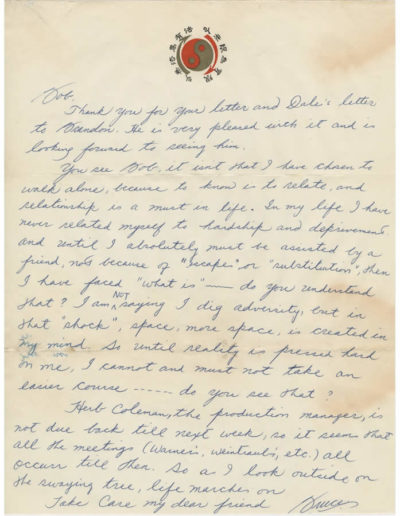 以無法為有法 以無限為有限
Bob,
Thank you for your letter and Dale's letter
to Brandon. He is very pleased with it and is
looking forward to seeing him.
You see Bob, it isnt that I have chosen to
walk alone, because to know is to relate, and
relationship is a must in life. In my life I have
never related myself to hardship and deprivement
and until I absolutely must be assisted by a
friend, not because of "escapes" or "substitution", then
I have faced "what is" —— do you understand
that? I am NOT saying I dig adversity, but in
that "shock", space, more space, is created in
my mind. So until reality is pressed hard
on me, I cannot and must not take an
easier course ------ do you see that ?
Herb Coleman, the production manager, is
not due back till next week, so it seems that
all the meetings (Warner's, Weintraub's, etc.) all
occurr till then. So a I look outside on
the swaying tree, life marches on
Take Care my dear friend
Bruce